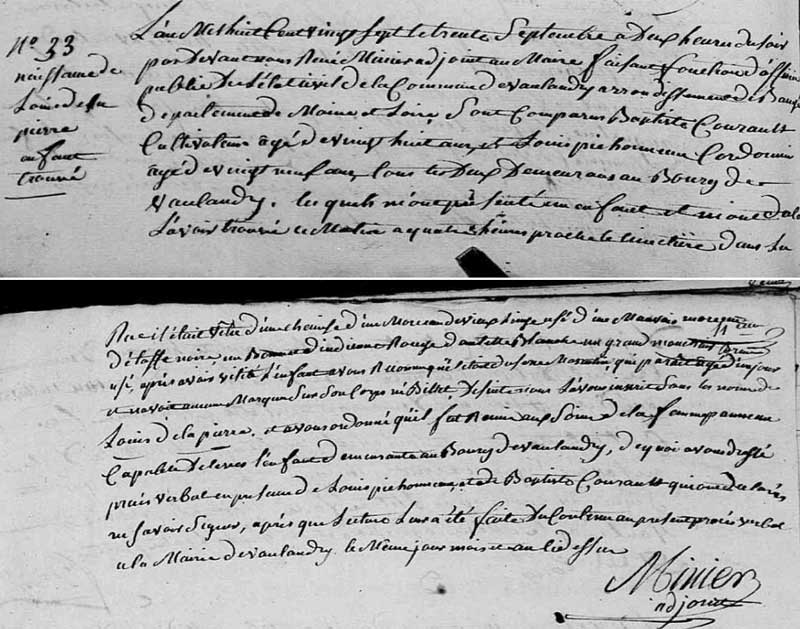 N° 33
naissance de
Louis de la
pierre
enfant
trouvé
L'an Mil huit Cent vingt Sept le trente Septembre a Deux heures du soir
par Devant nous René Minier adjoint au Maire faisant fonction d'officier
public De l'état civil de la Commune de vaulandry arrondissement de Baugé
Departement de Maine et Loire Sont Comparus Baptiste Courault
Cultivateur agé de vingt huit ans, et Louis pichonneau Cordonnier
agé de vingt neuf ans, tous les Deux Demeurans au Bourg de
vaulandry. les quels m'ont présenté un enfant et m'ont déclaré
L'avoir trouvé ce Matin a quatre heures proche le cimetière dans la
Rue il était vétu d'une chemise d'un Morceau de vieux linge usé d'une Mauvais
d'étoffe noire un Bonnet d'indienne Rouge dentelle Blanche un grand mouchoir
usé, après avoir visité L'enfant avons Reconnu qu'il était du sexe Masculin, qui paraît agé d'un jour
et n'avoit aucune Marque Sur Son Corps ni Billet, De Suite nous L'avons inscrit Sous les noms de
Louis de la pierre. et avons ordonné qu'il fut Remis aux Soins de la femme panneau
Capable D'elever l'enfant demeurante au Bourg de vaulandry, de quoi avons dressé
procès verbal en présence de Louis pichonneau, et de Baptiste Courault qui ont déclarés
ne Savoir Signer, après que Lecture Leur a été faite Du Contenu au présent procès verbal
a la Mairie de vaulandry le Même jour mois et an que dessus
Minier
adjoint